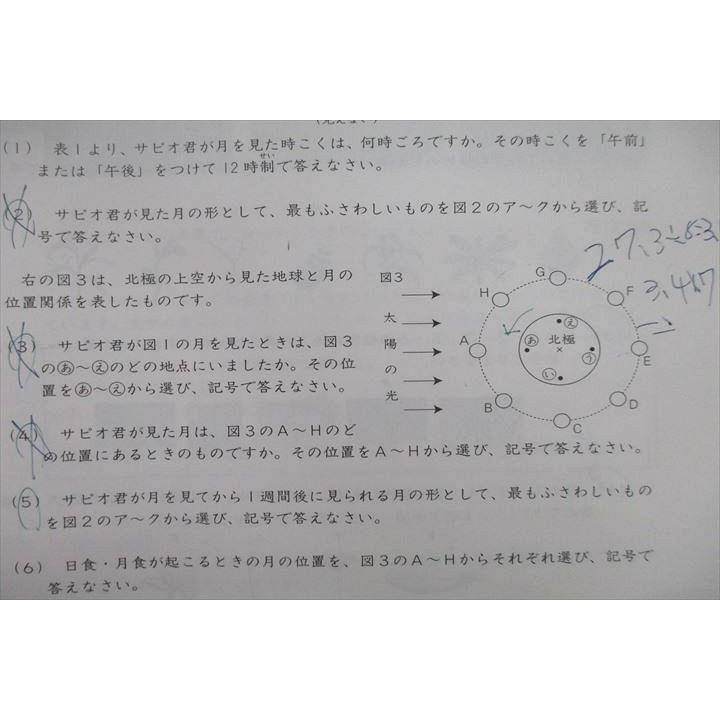 (見えない)
(1) 表1より、サピオ君が月を見た時こくは、何時ごろですか。その時こくを「午前」
または「午後」をつけて12時制で答えなさい。
せい
(2) サピオ君が見た月の形として、最もふさわしいものを図2のア～クから選び、記
号で答えなさい。
右の図3は、北極の上空から見た地球と月の
位置関係を表したものです。
(3) サピオ君が図1の月を見たときは、図3
のあ～えのどの地点にいましたか。その位
置をあ～えから選び、記号で答えなさい。
(4) サピオ君が見た月は、図3のA～Hのど
の位置にあるときのものですか。その位置をA～Hから選び、記号で答えなさい。
図3
太
陽
の
光
G
H
F
A
E
B
D
C
え
あ
北極
×
う
い
27.3÷8=3.
(5) サピオ君が月を見てから1週間後に見られる月の形として、最もふさわしいもの
を図2のア～クから選び、記号で答えなさい。
(6) 日食・月食が起こるときの月の位置を、図3のA～Hからそれぞれ選び、記号で
答えなさい。